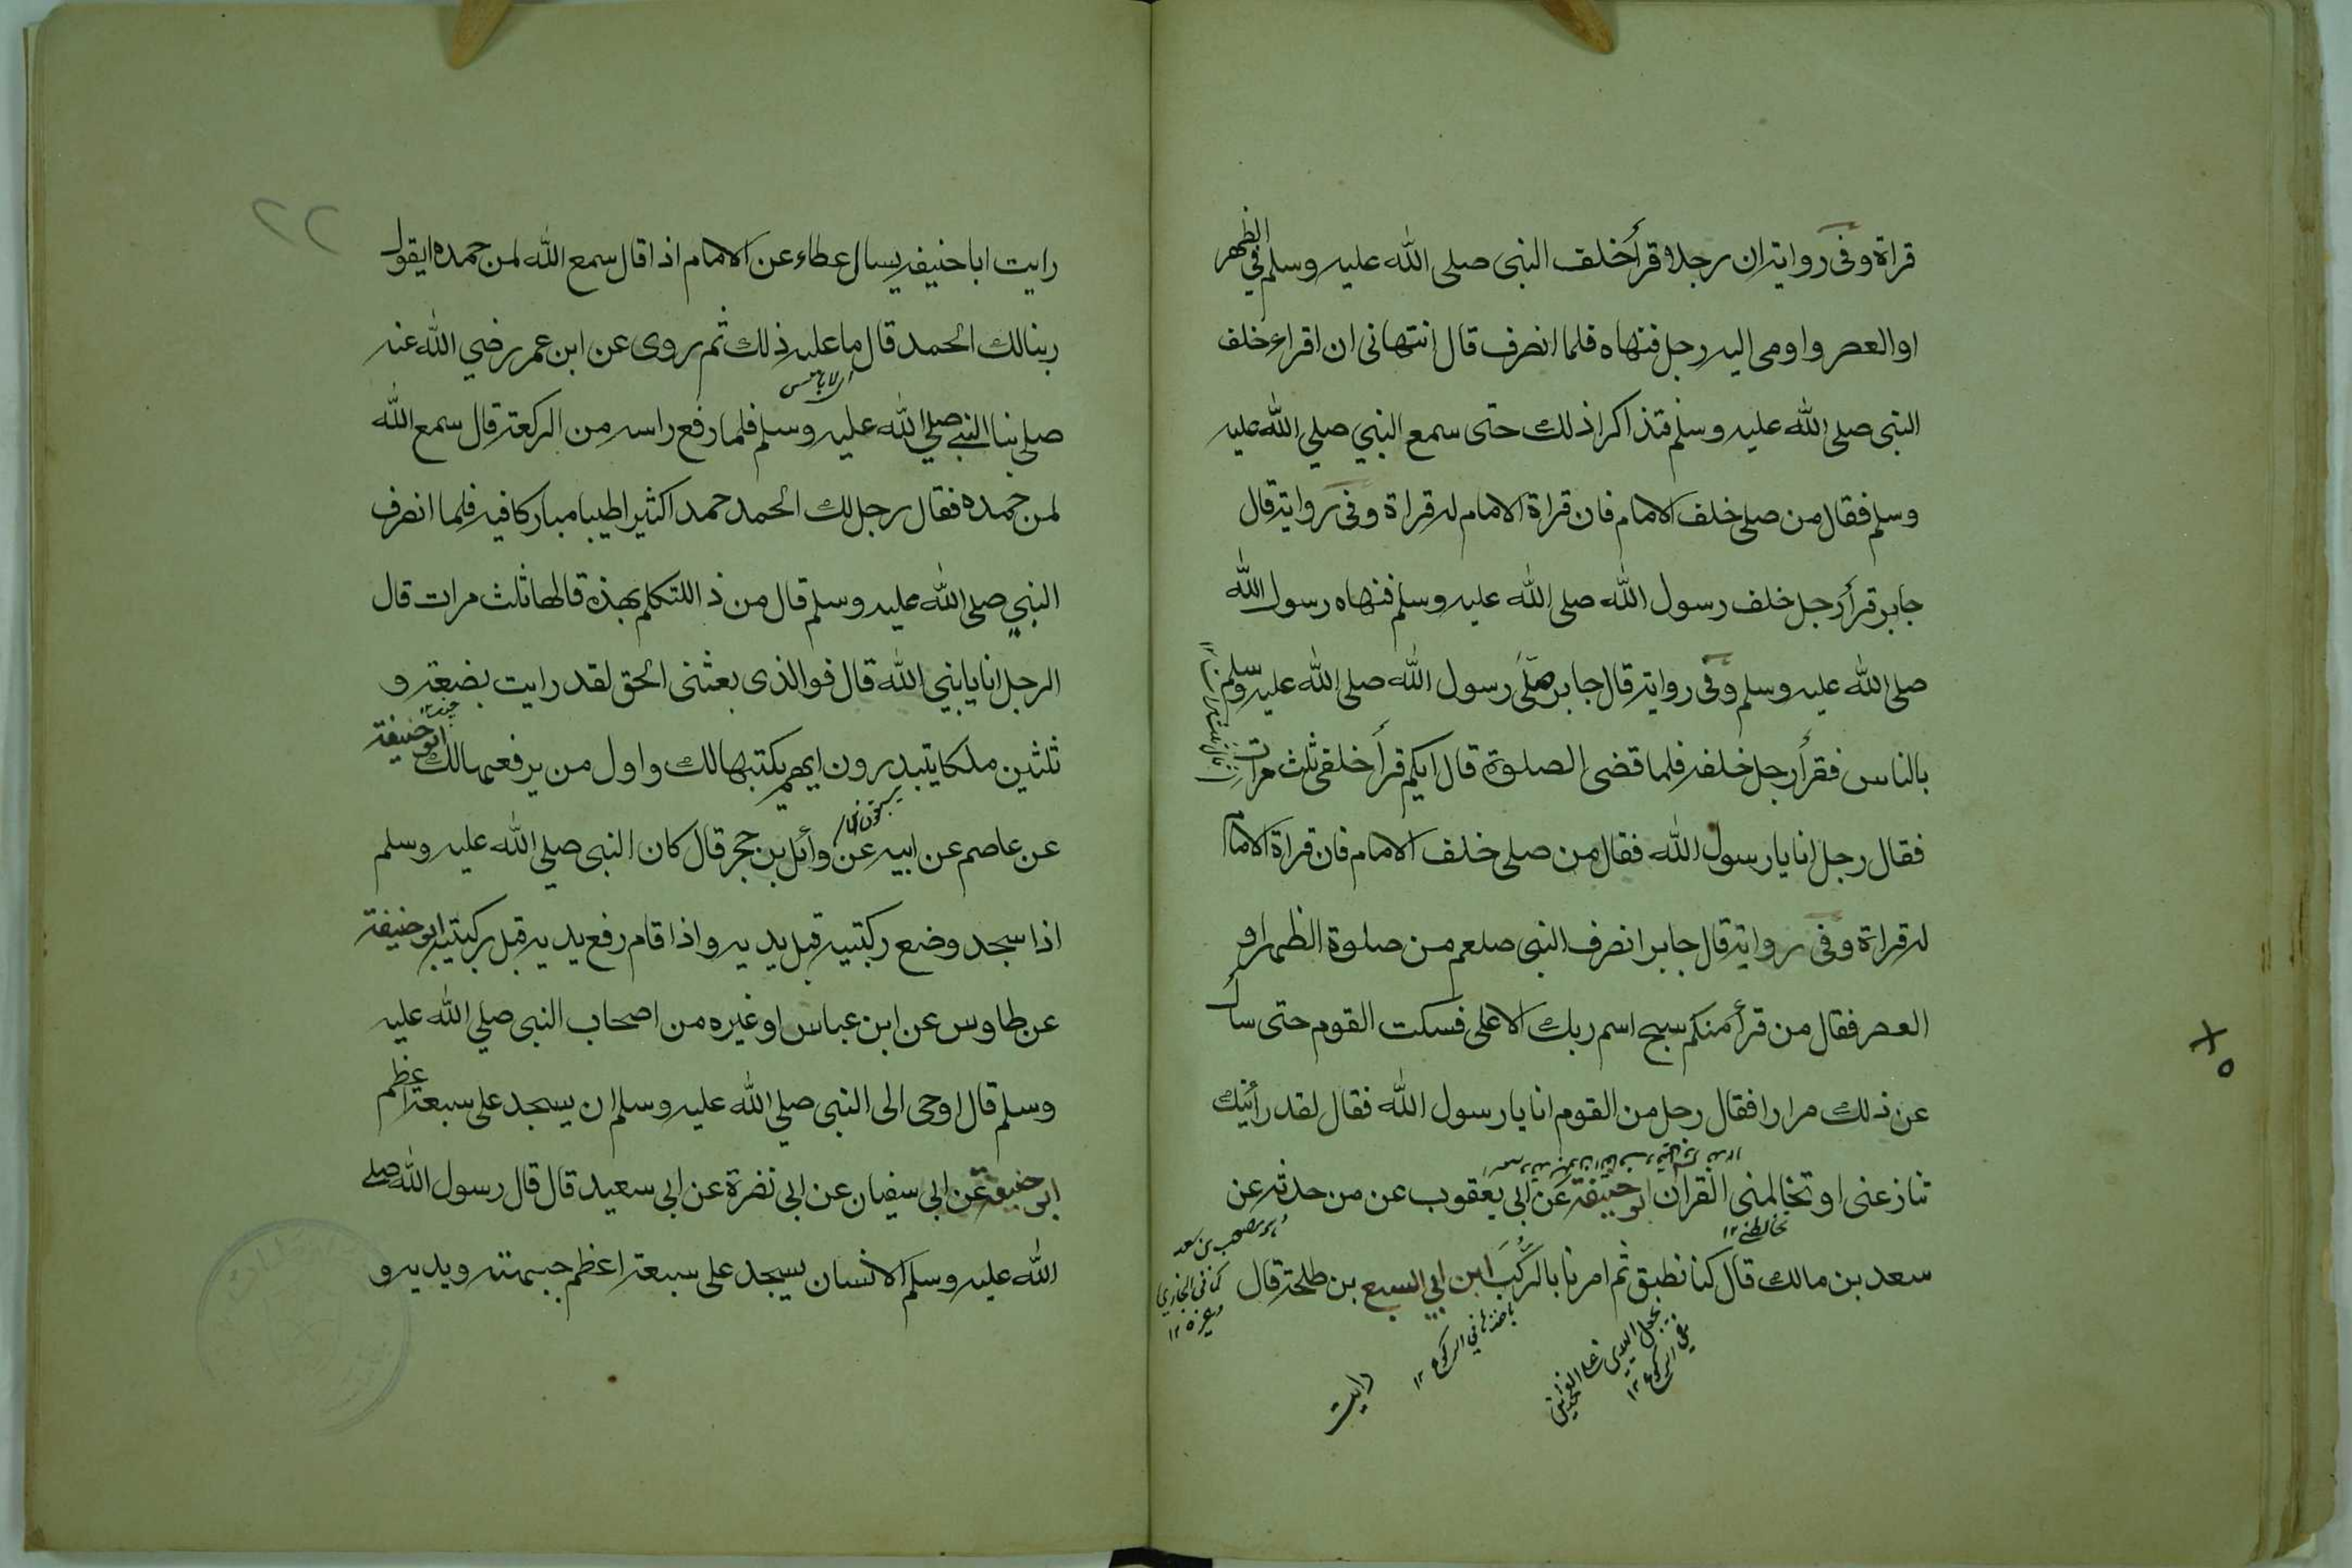 قراة وفى رواية ان رجلا قرأ خلف النبى صلى الله عليه وسلم في الظهر
او العصر واومى اليه رجل فنهاه فلما انصرف قال اتنهانى ان اقراء خلف
النبى صلى الله عليه وسلم فتذاكرا ذلك حتى سمع النبي صلي الله عليه
وسلم فقال من صلى خلف الامام فان قراة الامام له قراة وفى رواية قال
جابر قرأ رجل خلف رسول الله صلى الله عليه وسلم فنهاه رسول الله
صلى الله عليه وسلم وفى رواية قال جابر صلّى رسول الله صلى الله عليه وسلم
بالناس فقرأ رجل خلفه فلما قضى الصلوة قال ايكم قرأ خلفى ثلث مرات
فقال رجل انا يا رسول الله فقال من صلى خلف الامام فان قراة الامام
له قراة وفى رواية قال جابر انصرف النبى صلعم من صلوة الظهر او
العصر فقال من قرأ منكم سبح اسم ربك الاعلى فسكت القوم حتى سأل
عن ذلك مرارا فقال رجل من القوم انا يا رسول الله فقال لقد رأيتك
تنازعنى او تخالجنى القران ابو حنيفة عن ابى يعقوب عن من حدثه عن
تخالطنى ١٢
سعد بن مالك قال كنا نطبق ثم امرنا بالركب ابن ابي السبع بن طلحة قال
هو مصعب بن سعد
كما فى البخاري
وغيره ١٢
باخذها في الركوع ١٢
في الركوع ١٢
رايت
٢٢
رايت ابا حنيفه يسال عطاء عن الامام اذا قال سمع الله لمن حمده ايقول
ربنا لك الحمد قال ما عليه ذلك ثم روى عن ابن عمر رضي الله عنه
اى لا باس
صلى بنا النبى صلي الله عليه وسلم فلما رفع راسه من الركعة قال سمع الله
لمن حمده فقال رجل لك الحمد حمدا كثيرا طيبا مباركا فيه فلما انصرف
النبي صلى الله عليه وسلم قال من ذا المتكلم بهذه قالها ثلث مرات قال
الرجل انا يا نبي الله قال فوالذى بعثنى الحق لقد رايت بضعة و
ثلثين ملكا يتبدرون ايهم يكتبها لك واول من يرفعها لك ابو حنيفة
عن عاصم عن ابيه عن وأئل بن حجر قال كان النبى صلي الله عليه وسلم
اذا سجد وضع ركبتيه قبل يديه واذا قام رفع يديه قبل ركبتيه ابو حنيفة
عن طاوس عن ابن عباس او غيره من اصحاب النبى صلي الله عليه
وسلم قال اوحى الى النبى صلي الله عليه وسلم ان يسجد على سبعة اعظم
ابو حنيفة عن ابى سفيان عن ابى نضرة عن ابى سعيد قال قال رسول الله صلى
الله عليه وسلم الانسان يسجد على سبعة اعظم جبهته ويديه و